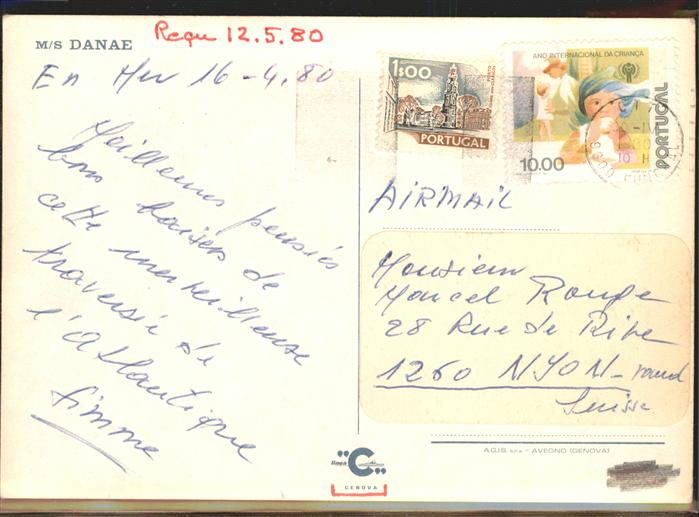 M/S DANAE
Reçu 12.5.80
En Mer 16-4.80
Meilleures pensées
bons baisers de
cette merveilleuse
traversée de
l'Atlantique
Simone
1$00
PORTUGAL
ANO INTERNACIONAL DA CRIANÇA
PORTUGAL
10.00
FUNCHAL
AIRMAIL
Monsieur
Marcel Rouge
28 Rue de Rive
1260 NYON - vaud
Suisse
linea C
GENOVA
A.G.I.S. s.n.c. - AVEGNO (GENOVA)